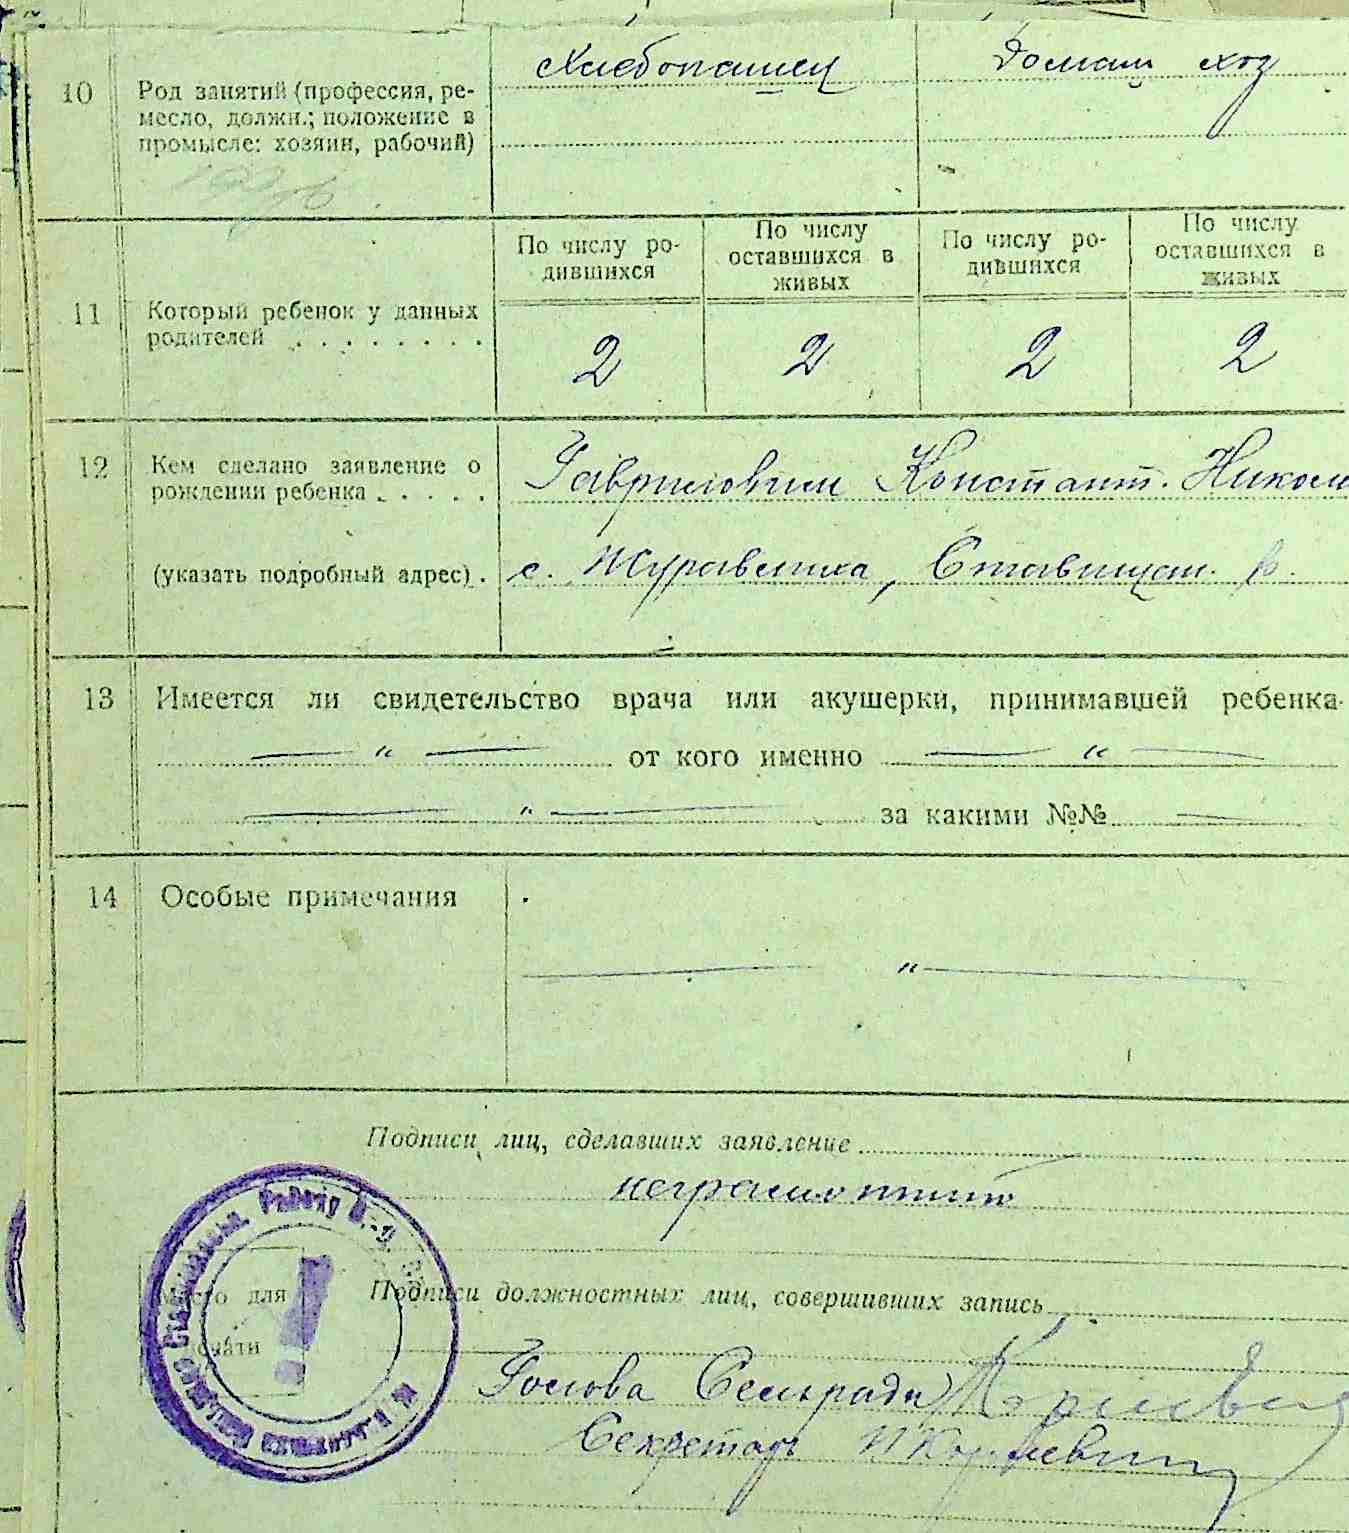 10
Род занятий (профессия, ре-
месло, должн.; положение в
промысле: хозяин, рабочий)
Хлебопашец
Домаш хоз
11
Который ребенок у данных
родителей . . . . . . . .
По числу ро-
дившихся
По числу
оставшихся в
живых
По числу ро-
дившихся
По числу
оставшихся в
живых
2 2 2 2
12
Кем сделано заявление о
рождении ребенка . . . . .
(указать подробный адрес) .
Гавриловим Констант. Никол
с. Журавлиха, Ставищан. в.
13
Имеется ли свидетельство врача или акушерки, принимавшей ребенка
— " — от кого именно — " —
— " — за какими №№ —
14
Особые примечания
— " —
Подписи лиц, сделавших заявление
неграмотний
Место для
печати
Подписи должностных лиц, совершивших запись
Голова Сельради
Секретарь